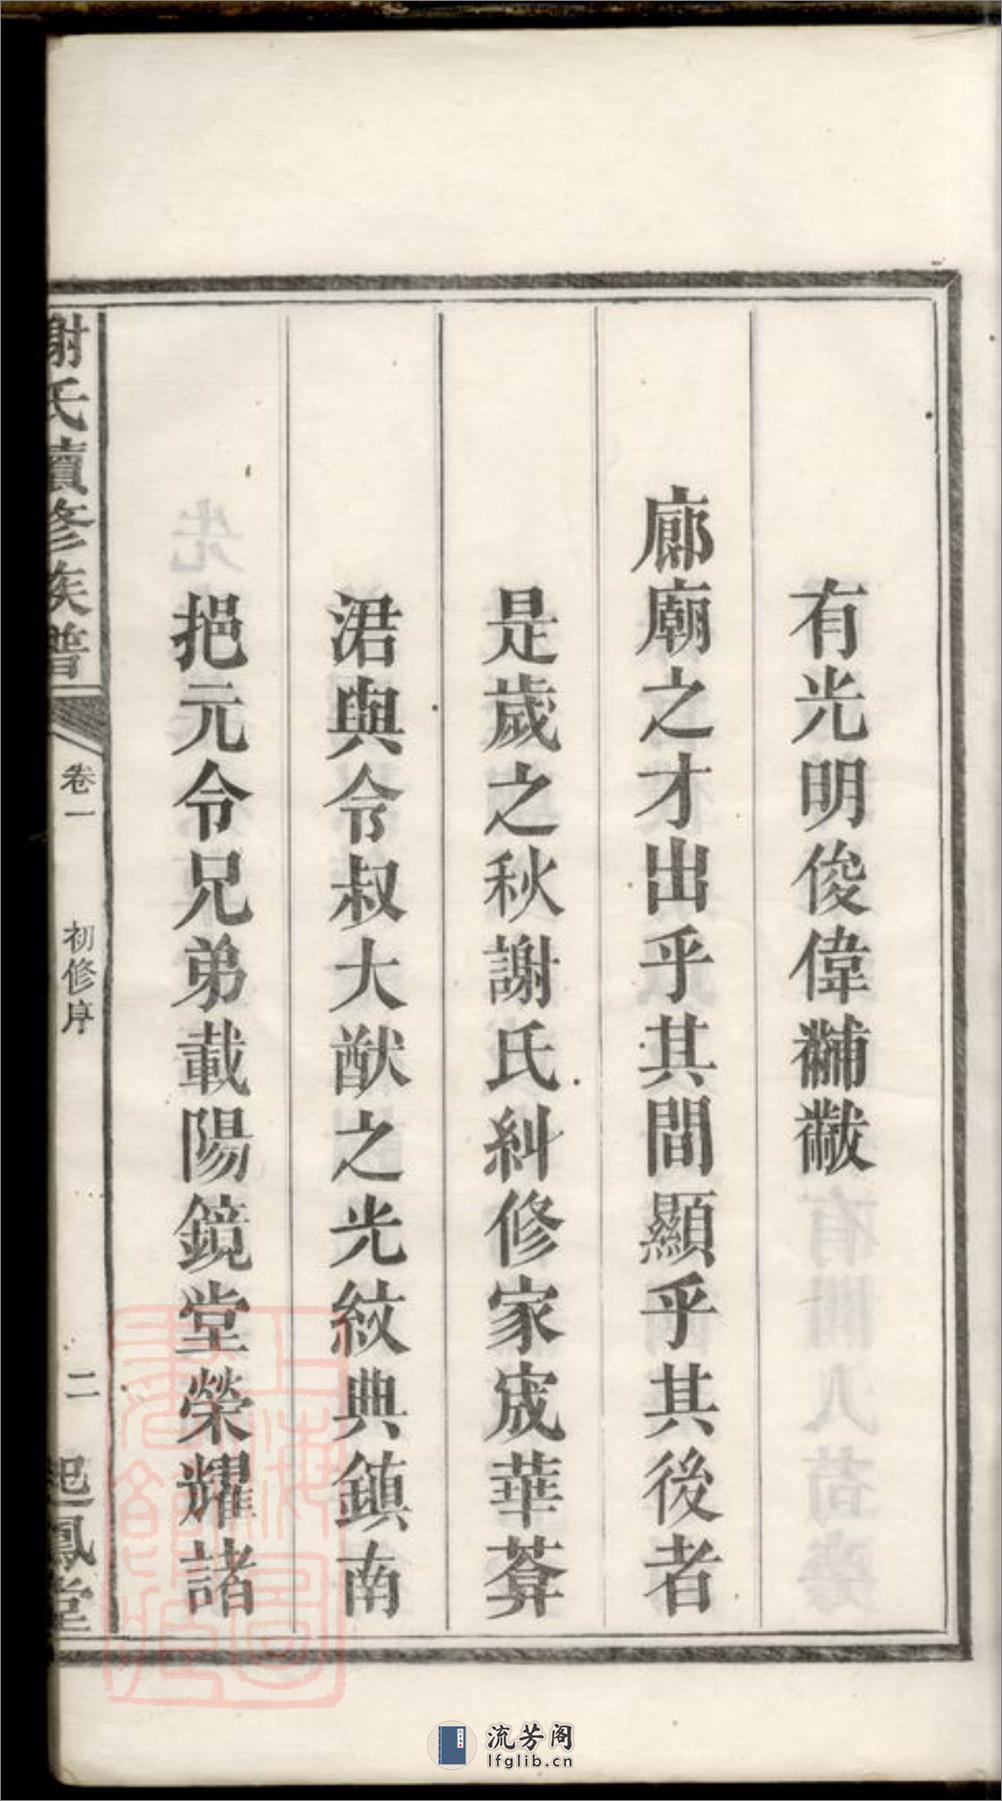 有光明俊偉黼黻
廊廟之才出乎其間顯乎其後者
是歲之秋謝氏糾修家宬華葊
涒與令叔大猷之光紋典鎮南
挹元令兄弟載陽鏡堂榮耀諸
謝氏續修族譜
卷一
初修序
二
起鳳堂
流芳阁
lfglib.cn